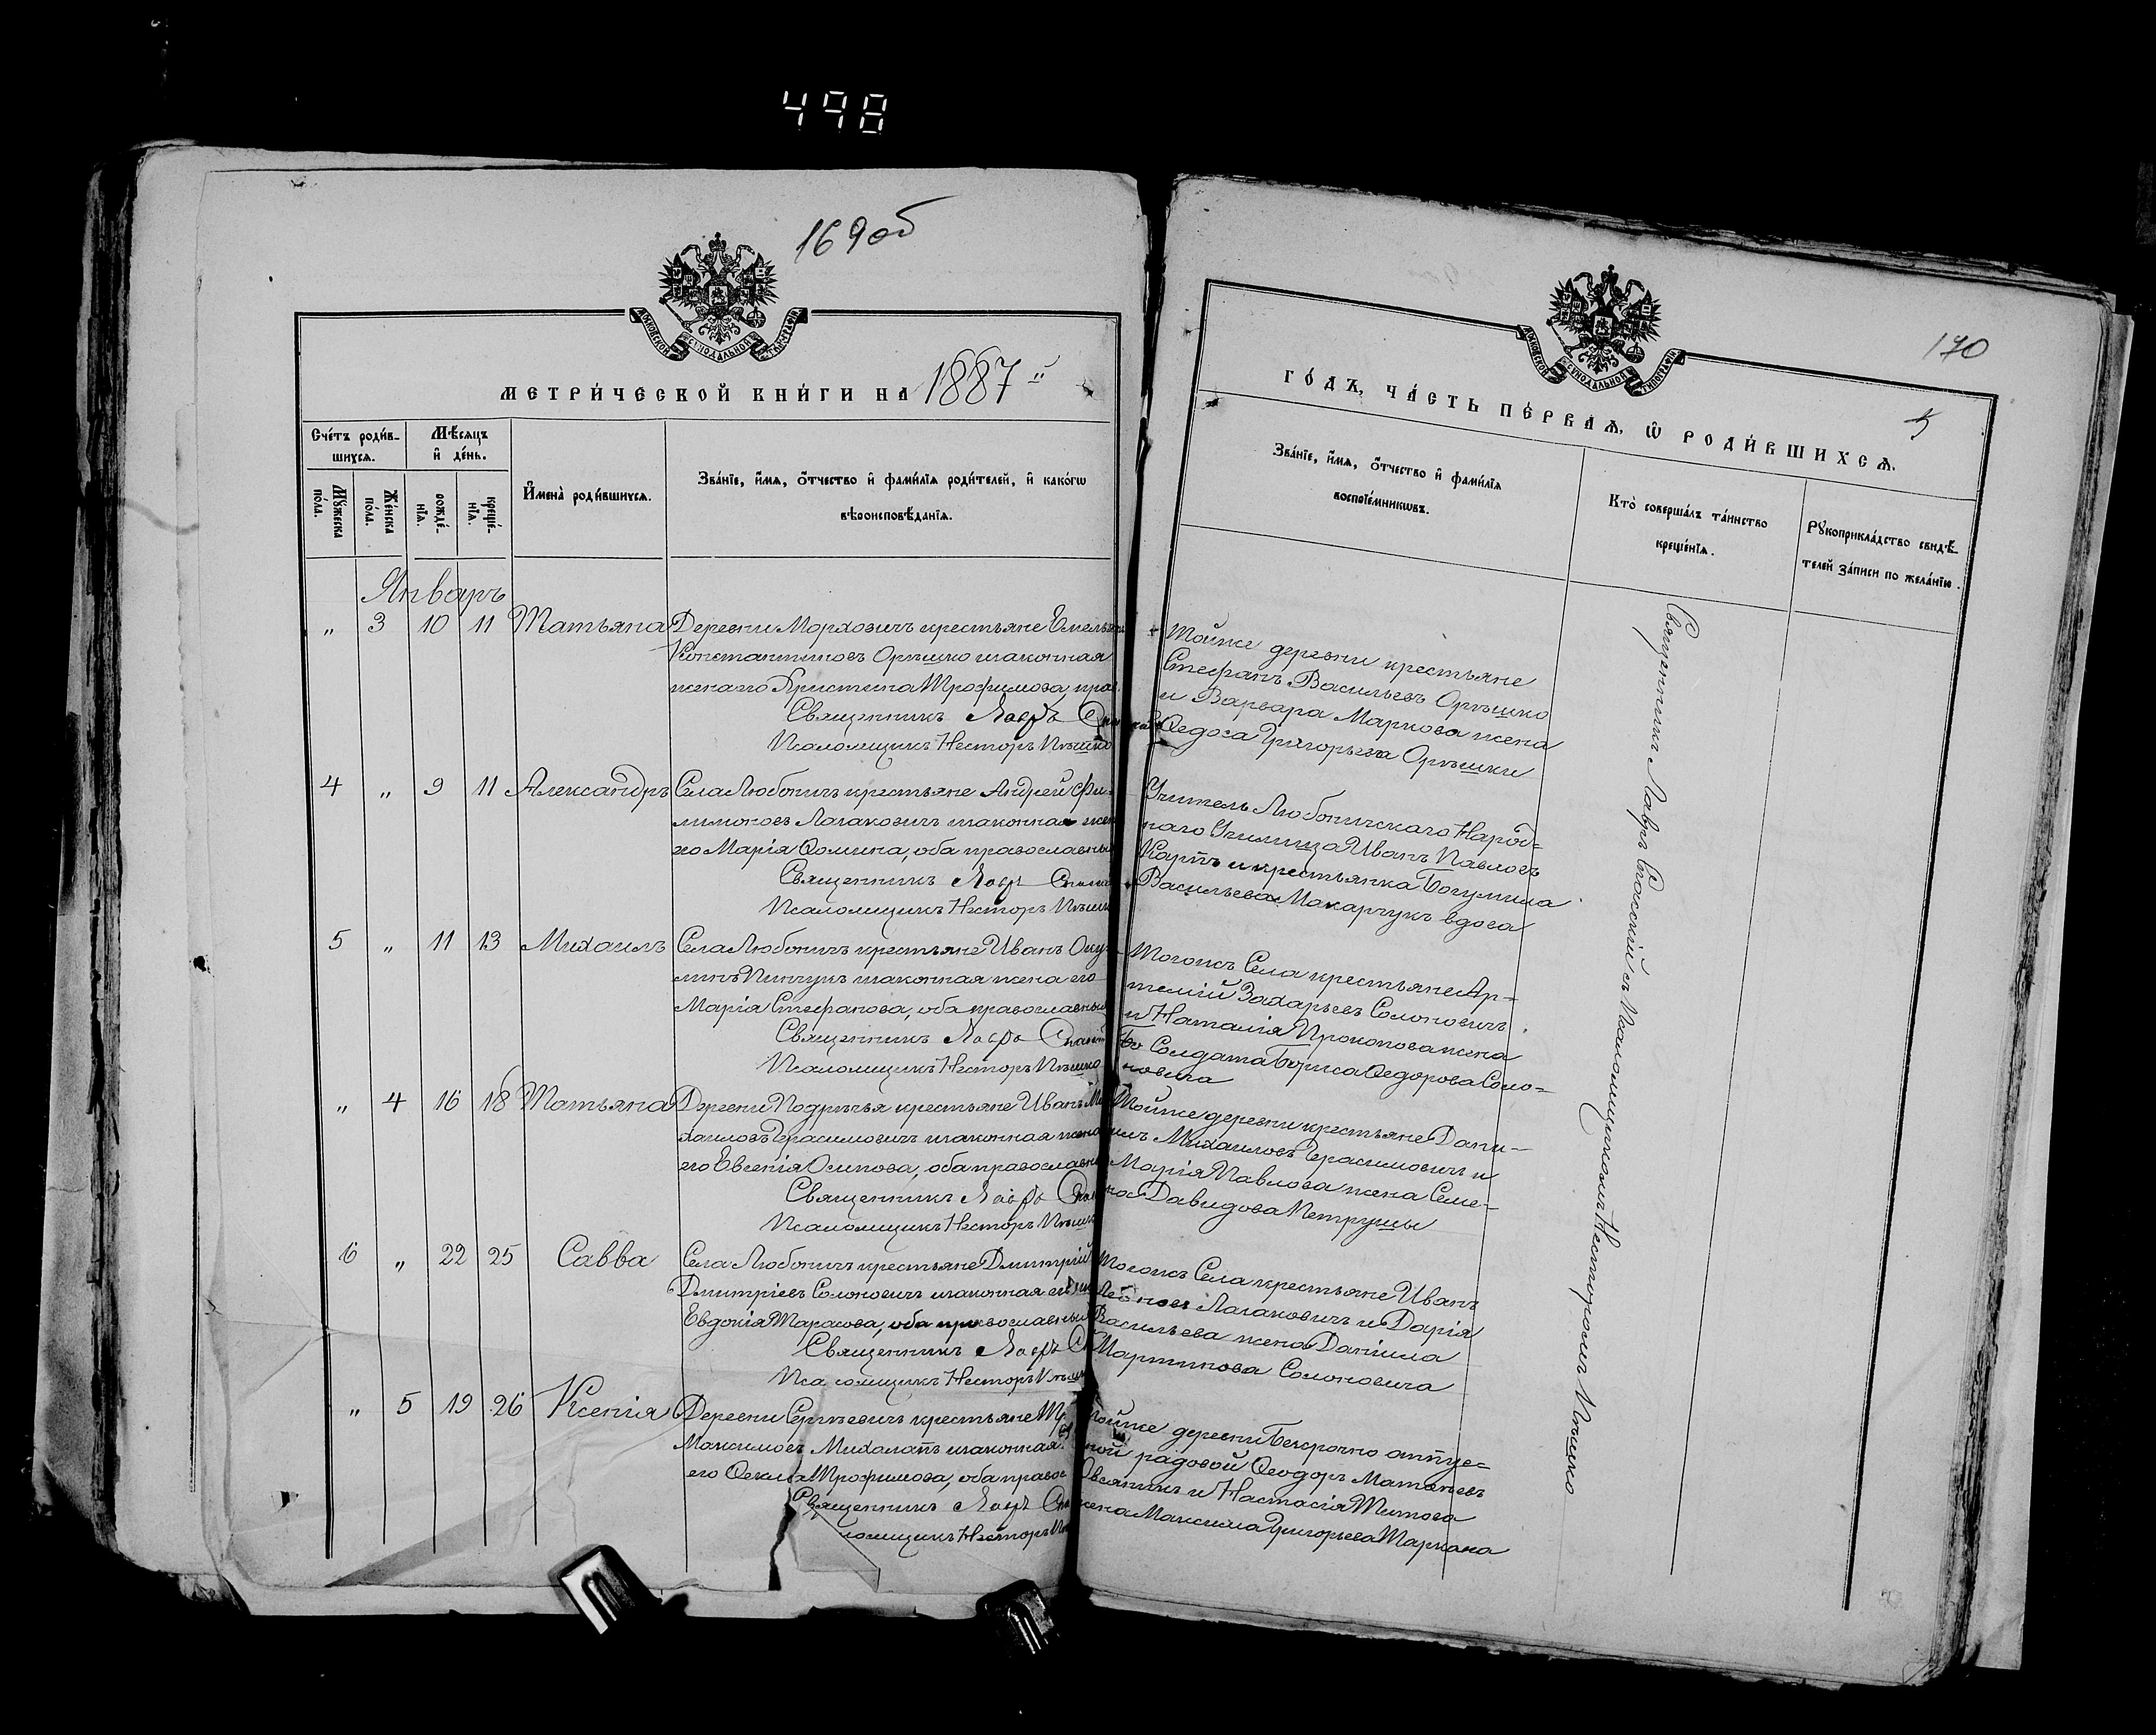 498
169об
МОСКОВСКОЙ СѴНОДАЛЬНОЙ ТИПОГРАФІИ
МЕТРИ́ЧЕСКОЙ КНИ́ГИ НА 1887"
Сче́тъ роди́в-
шихсѧ.
Мѣ́сѧцъ
и҆ де́нь.
Мꙋ́жеска
по́ла.
Же́нска
по́ла.
рожде́-
нїѧ.
креще́-
нїѧ.
И҆мена̀ роди́вшихсѧ.
Зва́нїе, и҆́мѧ, ѻ҆́тчество и҆ фами́лїѧ роди́телей, и҆ како́гѡ
вѣроисповѣ́данїѧ.
Январь
" 3 10 11 Татьяна
Деревни Морховичъ крестьяне Емельянъ
Константиновъ Орѣшко изаконная
жена его Христина Трофимова, прав.
Священникъ Лавръ
Псаломщикъ Несторъ Пѣшко
4 " 9 11 Александръ
Села Любоничъ крестьяне Андрей Фи-
лимоновъ Лагаковичъ изаконная жен
его Марія Ѳомина, оба православны
Священникъ Лавръ
Псаломщикъ Несторъ Пѣшк
5 " 11 13 Михаилъ
Села Любоничъ крестьяне Иванъ
Пинчукъ изаконная жена его
Марія Стефанова, оба православны
Священникъ Лавръ
Псаломщикъ Несторъ Пѣшко
" 4 16 18 Татьяна
Деревни Подрѣчья крестьяне Иванъ Ми
хаиловъ Герасимовичъ изаконная жена
его Евгенія Осипова, оба православн
Священникъ Лавръ
Псаломщикъ Несторъ Пѣшк
6 " 22 25 Савва
Села Любоничъ крестьяне Дмитрій
Дмитріевъ Солоновичъ изаконная его
Евдокія Тарасова, оба православны
Священникъ Лавръ
Псаломщикъ Несторъ Пѣшк
" 5 19 26 Ксенія
Деревни Сергѣевичъ крестьяне
Максимовъ Михалапъ изаконная
его Ѳекла Трофимова, оба правос
Священникъ Лавръ
ломщикъ Несторъ
170
5
МОСКОВСКОЙ СѴНОДАЛЬНОЙ ТИПОГРАФІИ
ГО́ДЪ, ЧА́СТЬ ПЕ́РВАѦ, Ѡ҆ РОДИ́ВШИХСѦ.
Зва́нїе, и҆́мѧ, ѻ҆́тчество и҆ фами́лїѧ
воспрїе́мникѡвъ.
Кто̀ соверша́лъ та́инство
креще́нїѧ.
Рꙋкоприкла́дство свидѣ́-
телей за́писи по жела́нїю.
Тойже деревни крестьяне
Стефанъ Васильевъ Орѣшко
и Варвара Маркова жена
Ѳедоса Григорьева Орѣшки
Учитель Любоничскаго Народ-
наго Училища Иванъ Павловъ
Карпъ и крестьянка Богумила
Васильева Макарчукъ вдова
Тогожъ Села крестьяне Ар-
темій Захарьевъ Солоновичъ
и Наталія Прокопова жена
Солдата Бориса Ѳедорова Соло-
новича
Тойже деревни крестьяне Дани-
илъ Михаиловъ Герасимовичъ и
Марія Павлова жена Семе-
на Давидова Петрушы
Тогожъ Села крестьяне Иванъ
Леоновъ Лагаковичъ и Дарія
Васильева жена Даніила
Мартинова Солоновича
Тойже деревни Безсрочно отпус-
ной рядовой Ѳеодоръ Матвѣевъ
Овсяникъ и Настасія Титова
жена Максима Григорьева Таркана
Священникъ Лавръ Спасскій съ Псаломщикомъ Несторомъ Пѣшко